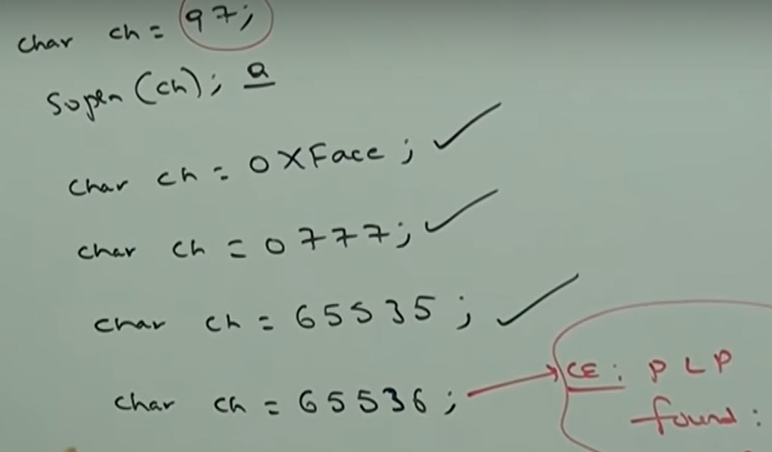 char ch = 97;
Sopln (ch); a
char ch = 0XFace;
char ch = 0777;
char ch = 65535;
char ch = 65536;
CE: PLP
found: